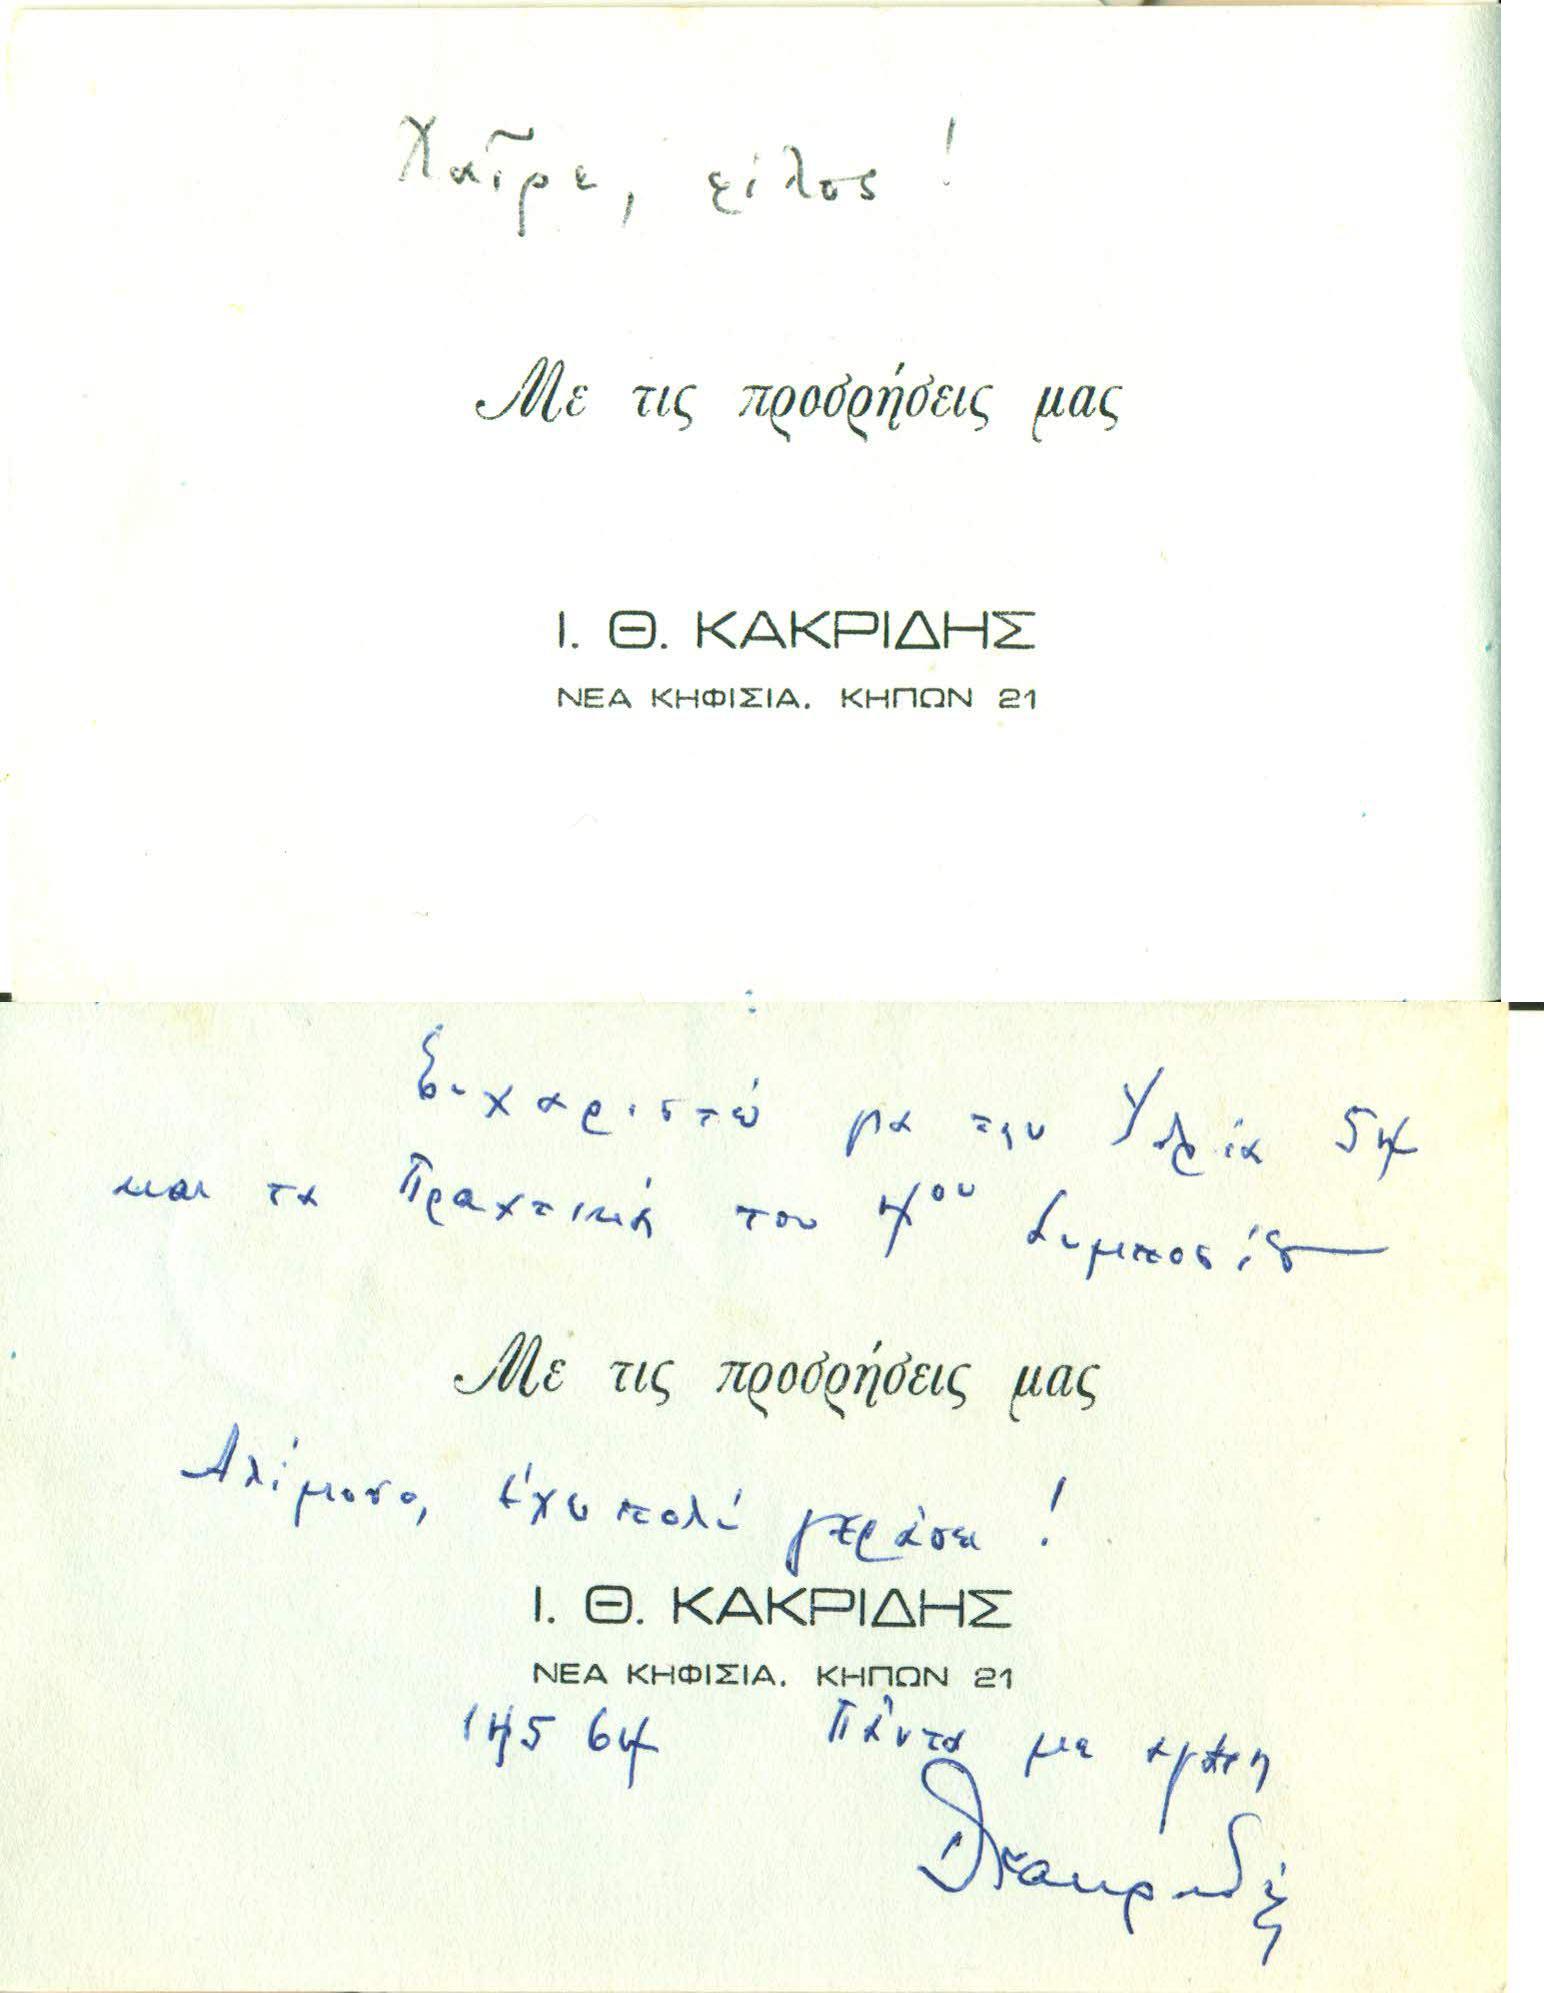 Χαῖρε, φίλος!
Με τις προσρήσεις μας
Ι. Θ. ΚΑΚΡΙΔΗΣ
ΝΕΑ ΚΗΦΙΣΙΑ, ΚΗΠΩΝ 21
Ευχαριστώ για την Υδρία 54
και τα Πρακτικά του 4ου Συμποσίου
Με τις προσρήσεις μας
Αλίμονο, έχω πολύ γεράσει!
Ι. Θ. ΚΑΚΡΙΔΗΣ
ΝΕΑ ΚΗΦΙΣΙΑ, ΚΗΠΩΝ 21
Πάντα με αγάπη
ΙΘΚακριδής